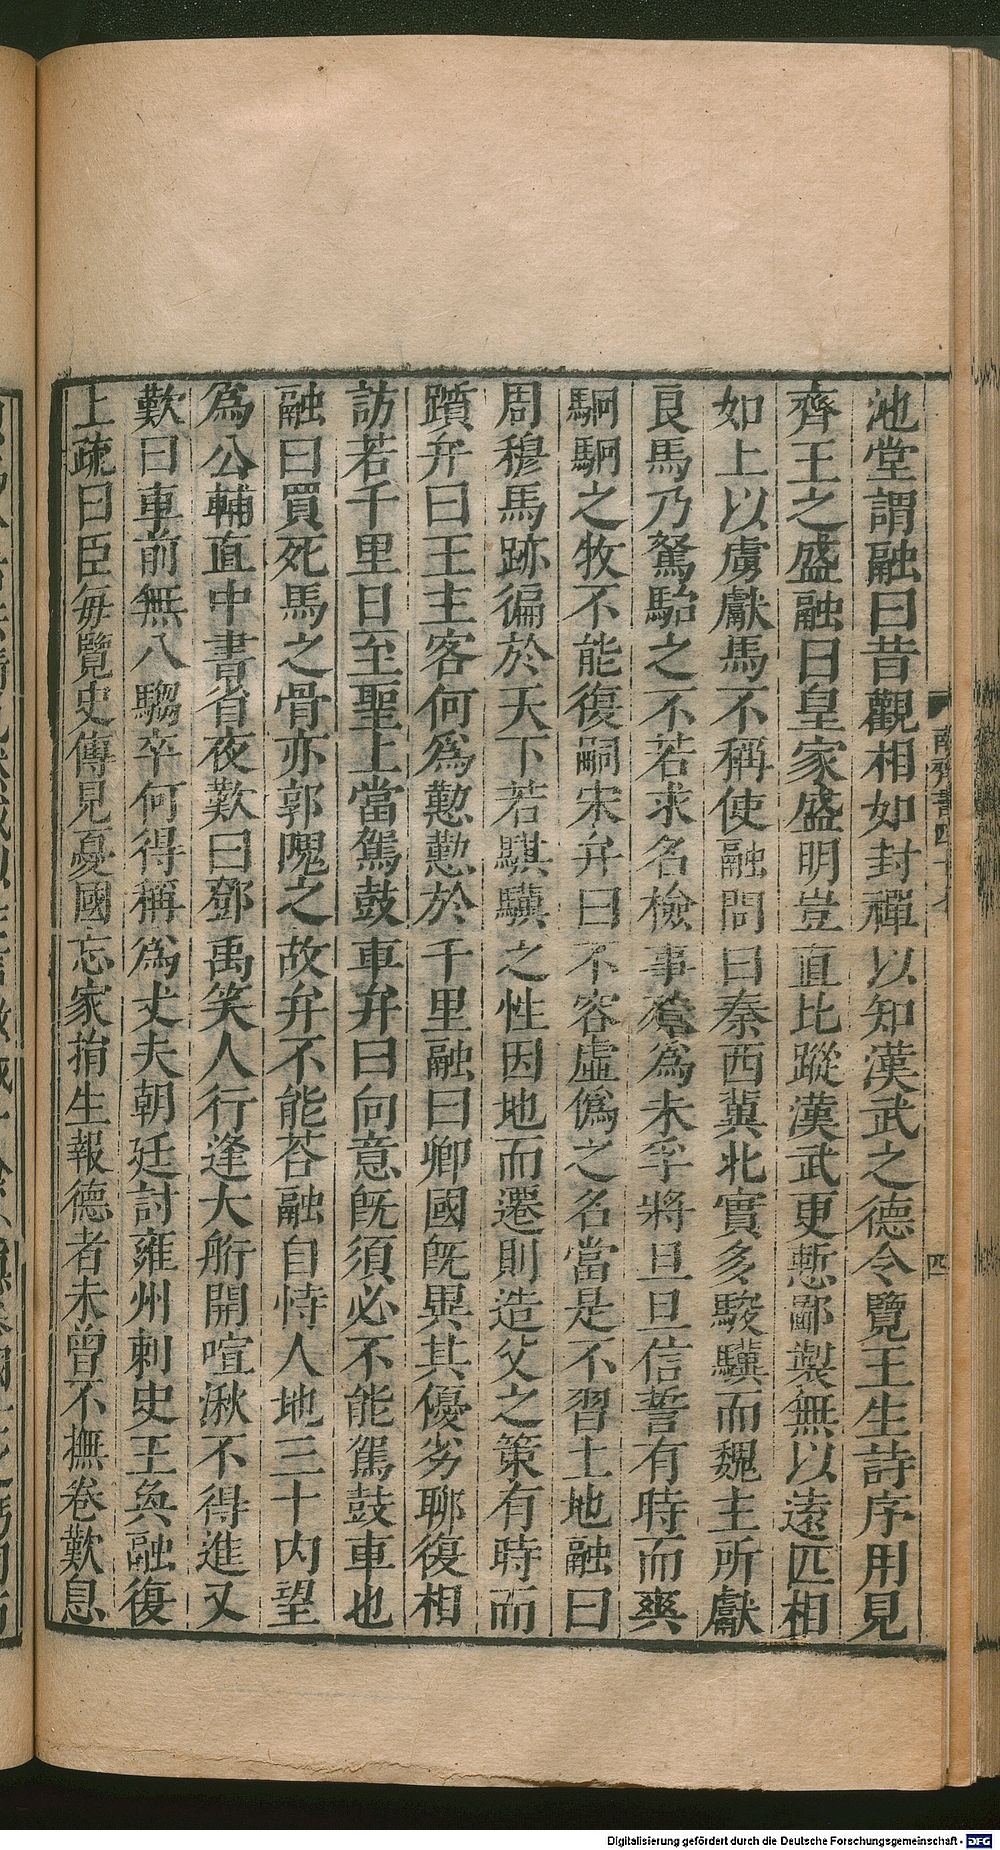 池堂謂融曰昔觀相如封禪以知漢武之德今覽王生詩序用見
齊王之盛融曰皇家盛明豈直比蹤漢武更慙鄙製無以遠匹相
如上以虜獻馬不稱使融問曰秦西冀北實多駿驥而魏主所獻
良馬乃駑駘之不若求名檢事殊為未孚將旦旦信誓有時而爽
駉駉之牧不能復嗣宋弁曰不容虛僞之名當是不習土地融曰
周穆馬跡徧於天下若騏驥之性因地而遷則造父之策有時而
躓弁曰王主客何為懃懃於千里融曰卿國既異其優劣聊復相
訪若千里日至聖上當駕鼓車弁曰向意既須必不能駕鼓車也
融曰買死馬之骨亦郭隗之故弁不能荅融自恃人地三十內望
為公輔直中書省夜歎曰鄧禹笑人行逢大䑨開喧湫不得進又
歎曰車前無八騶卒何得稱為丈夫朝廷討雍州刺史王奐融復
上疏曰臣每覽史傳見憂國忘家捐生報德者未曾不撫卷歎息
南齊書四十七
四
Digitalisierung gefördert durch die Deutsche Forschungsgemeinschaft - DFG